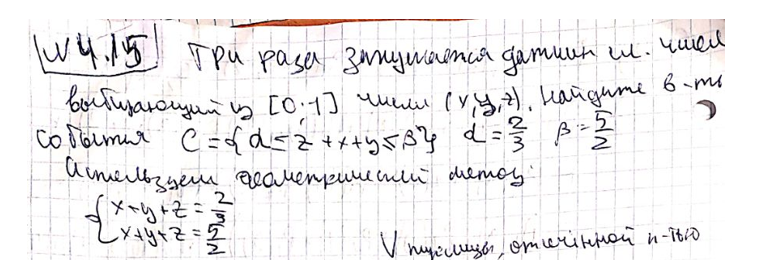 №4.15 Три раза запускается датчик сл. чисел
выбирающий из [0;1] числа (x,y,z). Найдите в-ть
события C = {α ≤ z + x + y ≤ β} α = 2/3 β = 5/2
Используем геометрический метод:
{ x + y + z = 2/3
x + y + z = 5/2
V пирамиды, отсечённой п-тью